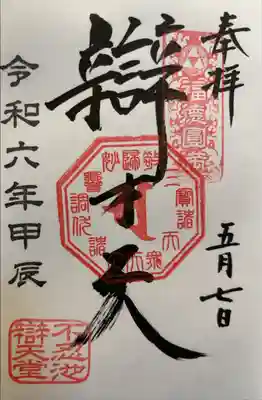 奉拝
五月七日
福徳圓満
辯才天
令和六年甲辰
不忍池
辯天堂